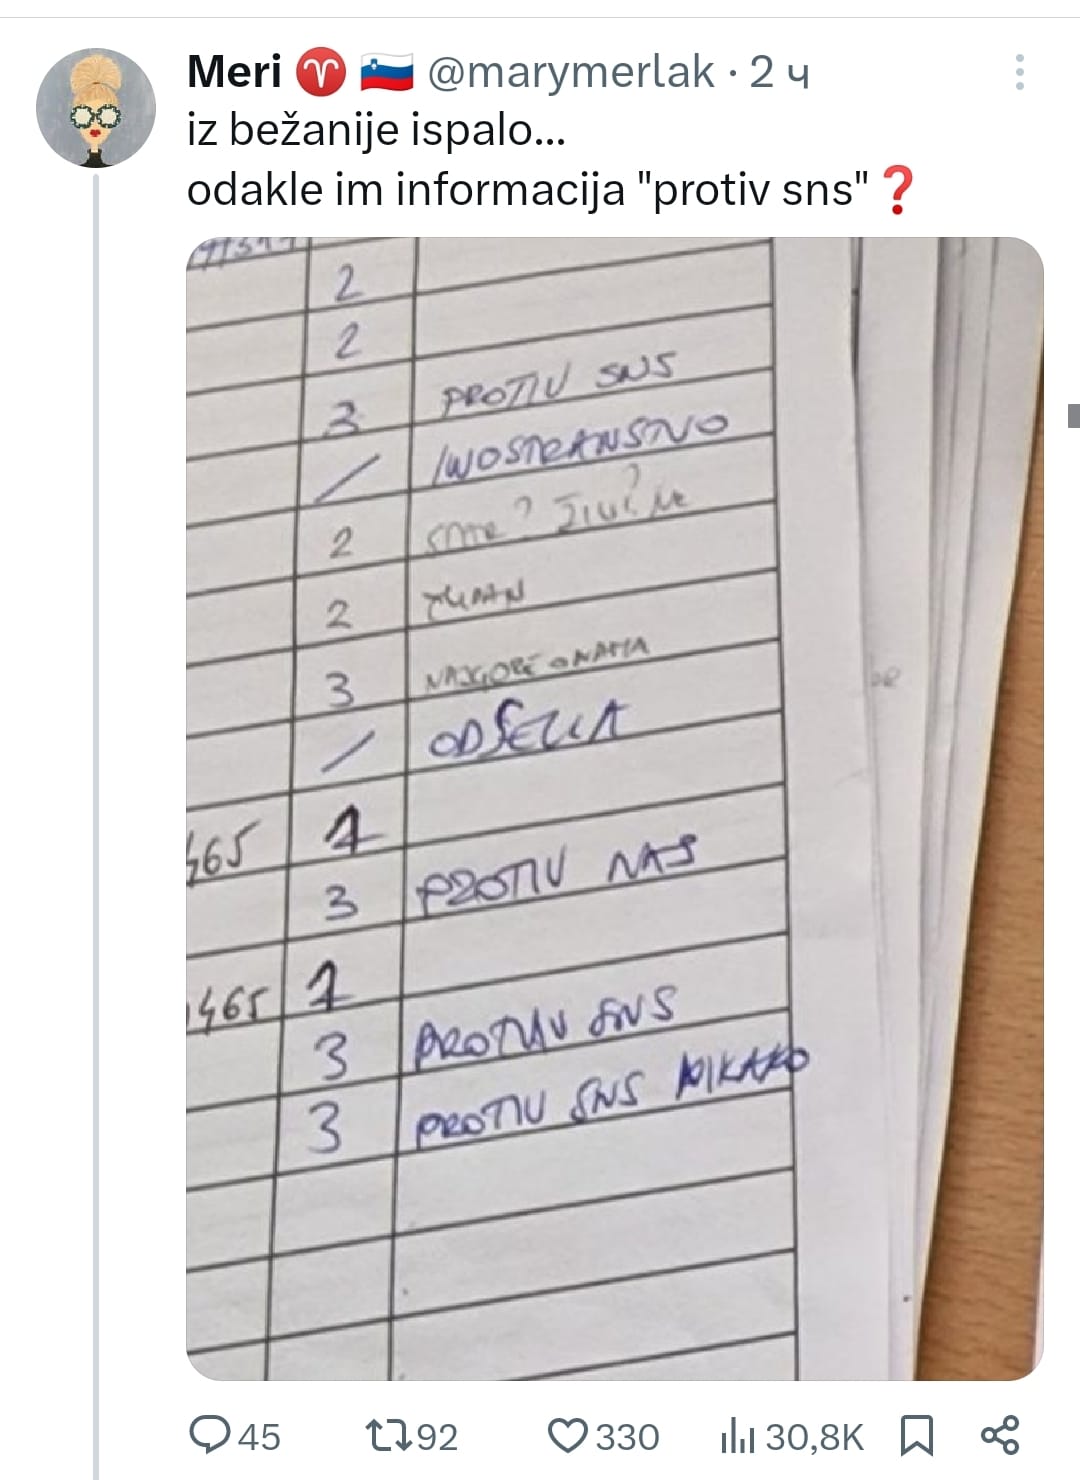 Meri ♈ 🇸🇮 @marymerlak · 2 ч
iz bežanije ispalo...
odakle im informacija "protiv sns"❓
2
2
3 PROTIV SNS
/ INOSTRANSTVO
2
2
3 NAJGORE O NAMA
/ ODSELILA
465 1
3 PROTIV NAS
1465 1
3 PROTIV SNS
3 PROTIV SNS NIKAKO
45 92 330 30,8K